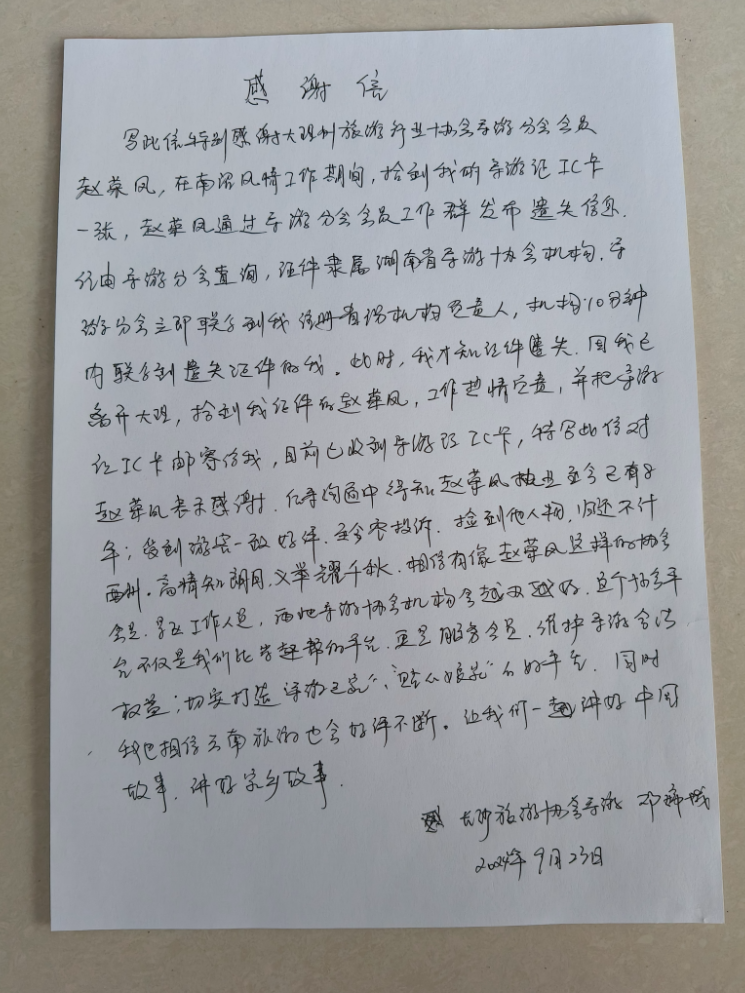 感谢信
写此信特别感谢大理州旅游行业协会导游分会会员
赵荣凤，在南诏风情工作期间，拾到我的导游证IC卡
一张，赵荣凤通过导游分会会员工作群发布遗失信息.
经由导游分会查询，证件隶属湖南省导游协会机构.导
游分会立即联系到我注册机构负责人，机构10分钟
内联系到遗失证件的我。此时，我才知证件遗失.因我已
离开大理，拾到我证件的赵荣凤，工作热情负责，并把导游
证IC卡邮寄给我，目前已收到导游证IC卡，特写此信对
赵荣凤表示感谢.沟通中得知赵荣凤执业至今已有8
年；受到游客一致好评.至今零投诉.捡到他人物,归还不
酬.高情知朗月,义举耀千秋.相信有像赵荣凤这样的协会
会员.工作人员，协会机构会越来越好.这个协会平
台不仅是我们的平台.更是服务会员.维护导游合法
权益；切实打造"之家"、"娘家"的好平台.同时
我也相信云南旅游也会好评不断。让我们一起讲好中国
故事.讲好家乡故事.
长沙旅游协会导游 邓
2024年9月23日